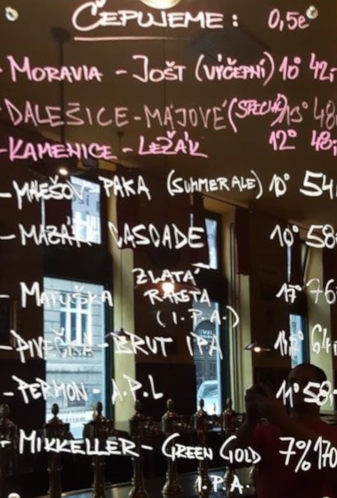 ČEPUJEME: 0,5ℓ
- MORAVIA - JOŠT (VÝČEPNÍ) 10° 42,-
- DALEŠICE - MÁJOVÉ (SPECIÁL) 13° 48
- KAMENICE - LEŽÁK 12° 48,-
- MALEŠOV - PAKA (SUMMER ALE) 10° 54
- MAZÁK CASCADE 10° 58
ZLATÁ
- MATUŠKA RAKETA 17° 76
(I.P.A.)
- PIVEČKA - BRUT IPA 64
- PERMON - A.P.L 11° 58
- MIKKELLER - GREEN GOLD 7% 170
I.P.A.